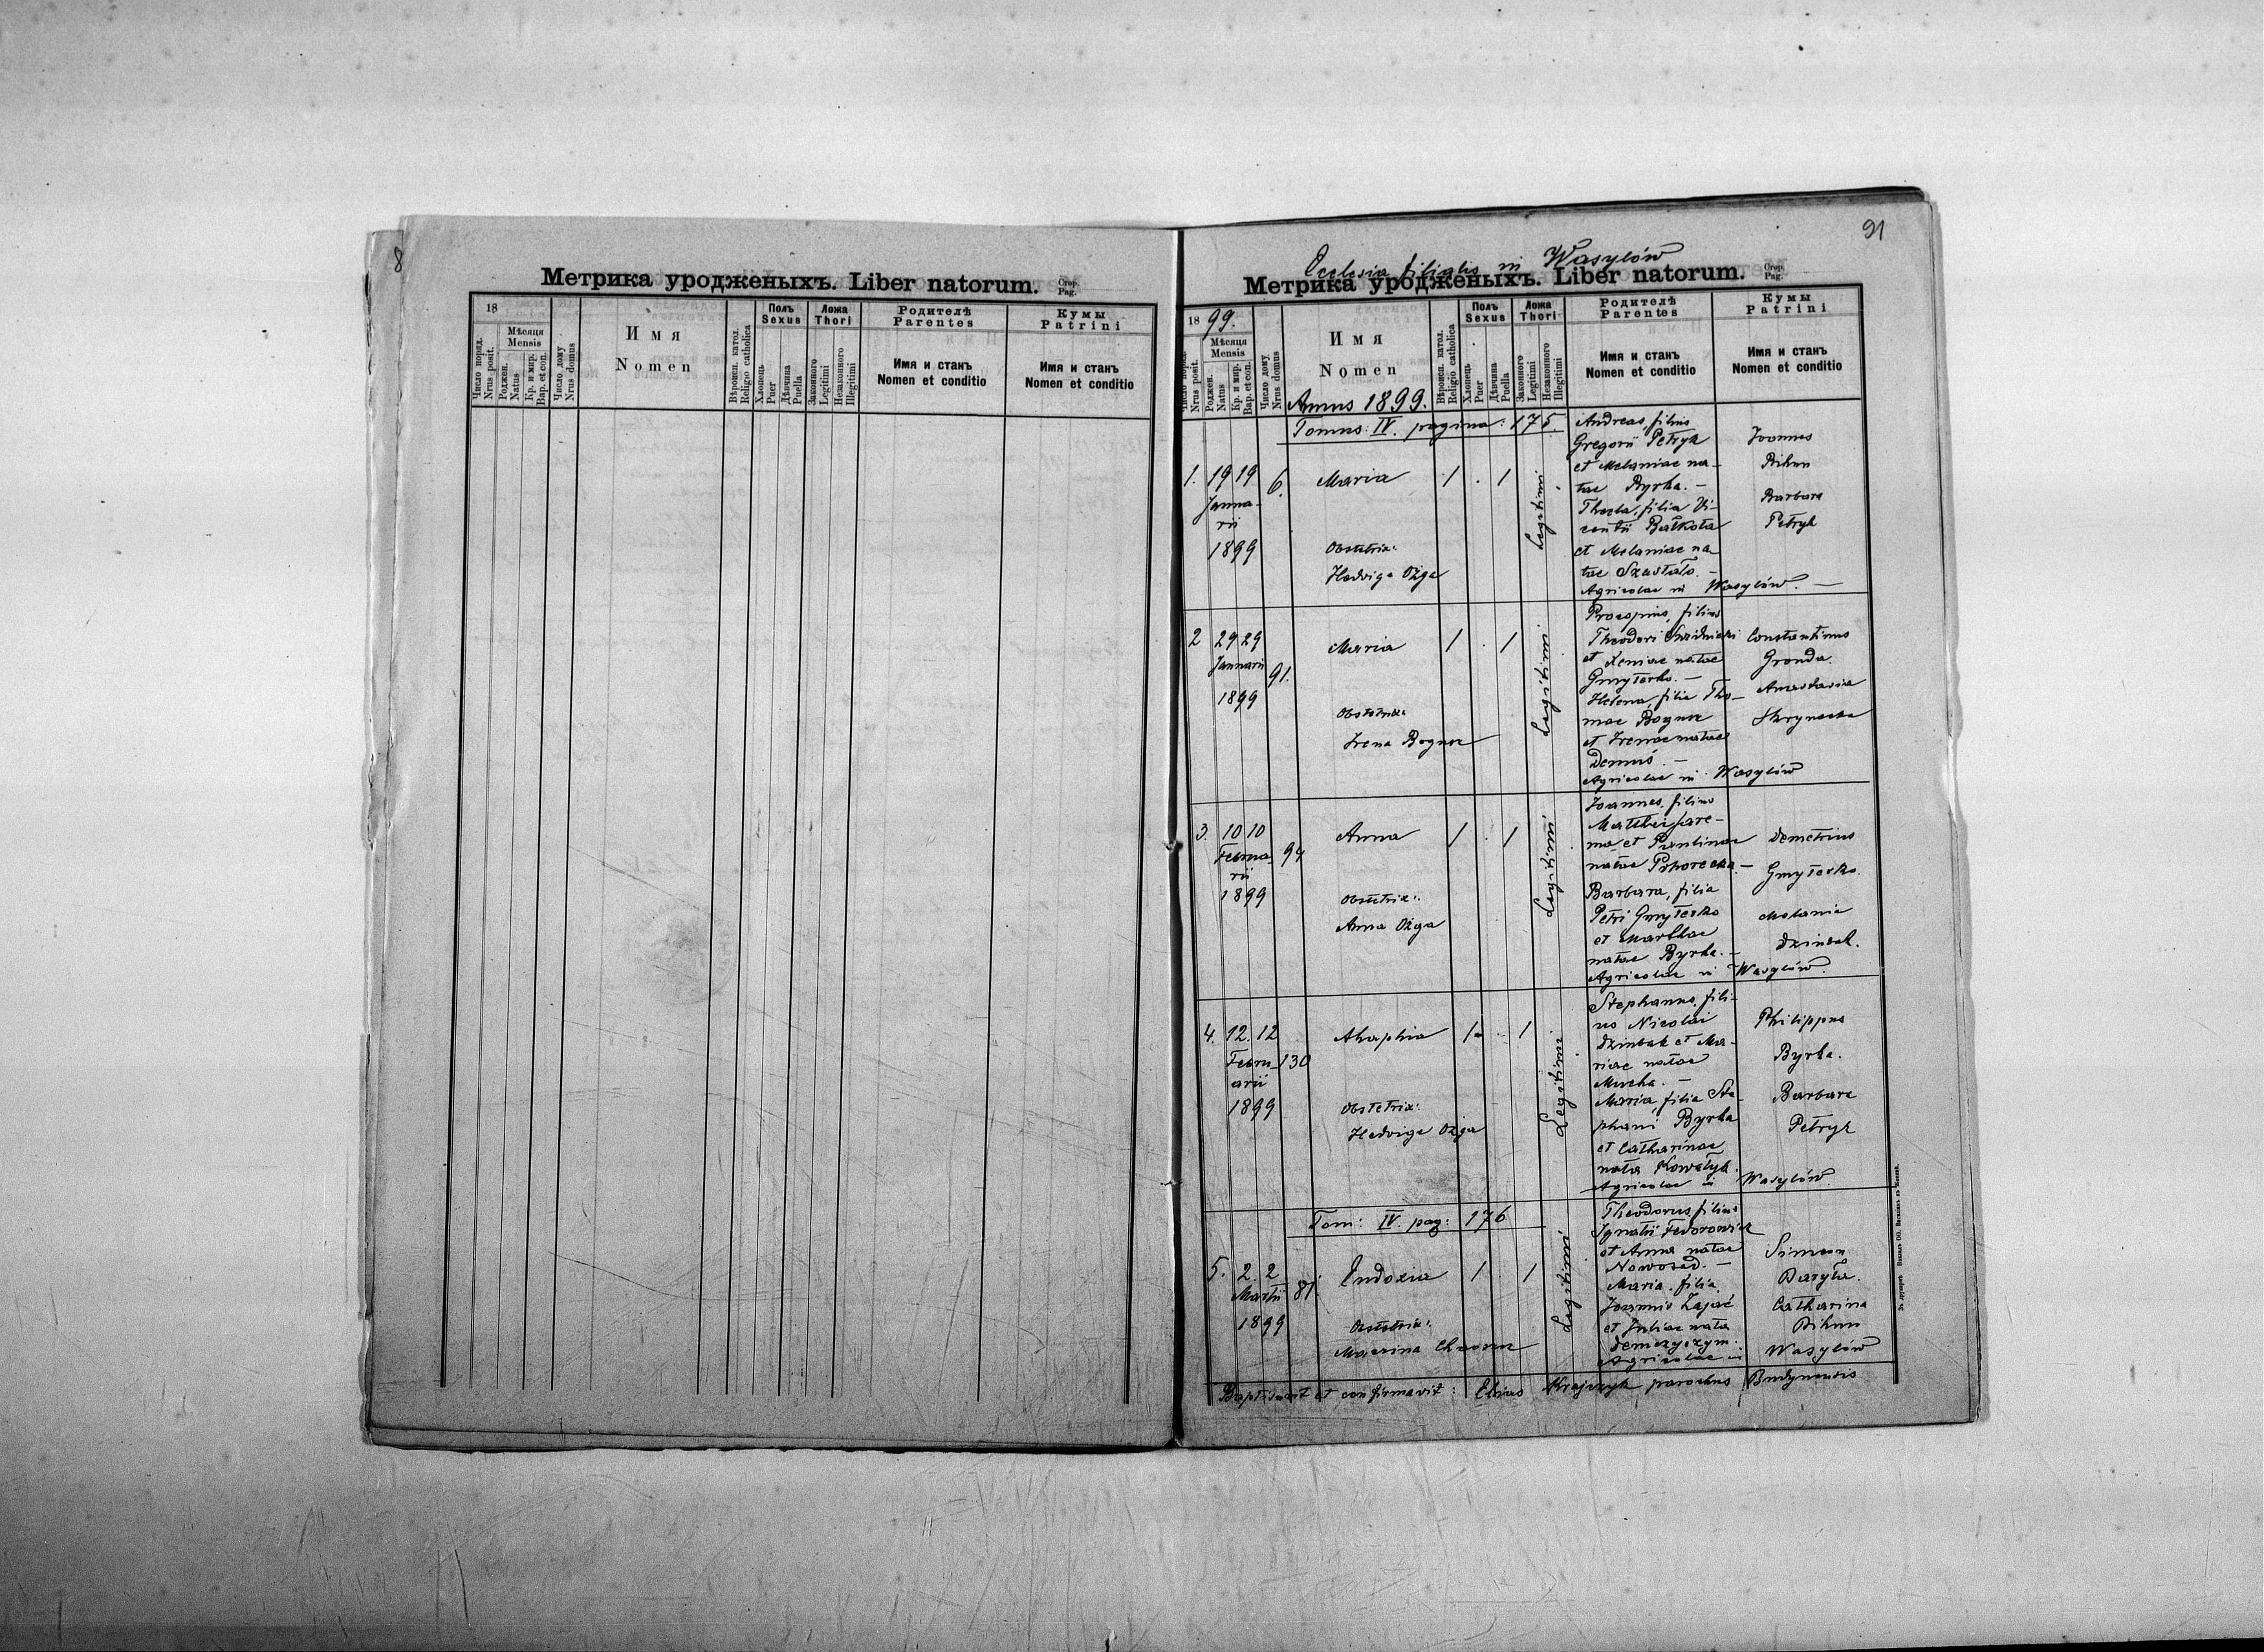 8
Метрика уродженыхъ. Liber natorum.
Стор.
Pag.
18
Число поряд.
Nrus posit.
Мѣсяця
Mensis
Роджен.
Natus
Кр. и мир.
Bap. et con.
Число дому
Nrus domus
Имя
Nomen
Вѣроисп. катол.
Religio catholica
Полъ
Sexus
Хлопець
Puer
Дѣвчина
Puella
Ложа
Thori
Законного
Legitimi
Незаконного
Illegitimi
Родителѣ
Parentes
Имя и станъ
Nomen et conditio
Кумы
Patrini
Имя и станъ
Nomen et conditio
91
Ecclesia filialis in Wasylów
Метрика уродженыхъ. Liber natorum.
Стор.
Pag.
18 99.
Nrus posit.
Мѣсяця
Mensis
Роджен.
Natus
Кр. и мир.
Bap. et con.
Число дому
Nrus domus
Имя
Nomen
Annus 1899.
Вѣроисп. катол.
Religio catholica
Полъ
Sexus
Хлопець
Puer
Дѣвчина
Puella
Ложа
Thori
Законного
Legitimi
Незаконного
Illegitimi
Родителѣ
Parentes
Имя и станъ
Nomen et conditio
Кумы
Patrini
Имя и станъ
Nomen et conditio
Tomus: IV. pagina: 175.
1. 19 19
Janua-
rii
1899
6.
Maria
Obstetrix:
Hedviga Ożga
1 . 1
Legitimi
Andreas, filius
Gregorii Petryk
et Melaniae na-
tae Byrka. -
Thecla, filia Vi-
centii Bałkota
et Melaniae na-
tae Szustało. -
Agricolae in Wasylów. -
Joannes
Bihun
Barbara
Petryk
2 29 29
Januarii
1899
91.
Maria
Obstetrix:
Irena Bognar
1 . 1
Legitimi
filius
Theodori
et Xeniae natae
Gmyterko. -
Helena, filia Tho-
mae Bognar
et Irenae natae
Demuś. -
Agricolae in Wasylów
Constantinus
Gronda.
Anastasia
Skrynecka
3. 10 10
Februa-
rii
1899
94
Anna
Obstetrix:
Anna Ożga
1 . 1
Legitimi
Joannes, filius
Matthei Jare-
ma et Paulinae
natae
Barbara, filia
Petri Gmyterko
et Marthae
natae Byrka. -
Agricolae in Wasylów.
Demetrius
Gmyterko.
Melania
Dziubak.
4. 12. 12
Febru-
arii
1899
130
Ahaphia
Obstetrix:
Hedviga Ożga
1 . 1
Legitimi
Stephanus, fili-
us Nicolai
Dziubak et Ma-
riae natae
Mucha. -
Maria, filia Ste-
phani Byrka
et Catharinae
nata Kowalyk.
Agricolae in Wasylów.
Philippus
Byrka.
Barbara
Petryk
Tom: IV. pag: 176
5. 2. 2
Martii
1899
81.
Eudoxia
Obstetrix:
Macrina
1 . 1
Legitimi
Theodorus, filius
Ignatii Fedorowicz
et Anna natae
Nowosad. -
Maria, filia
Joannis Zając
et Juliae nata
Agricolae in Wasylów
Simeon
Baryła.
Catharina
Bihun
Baptisavit et confirmavit: Elias Krajczyk parochus Budynensis